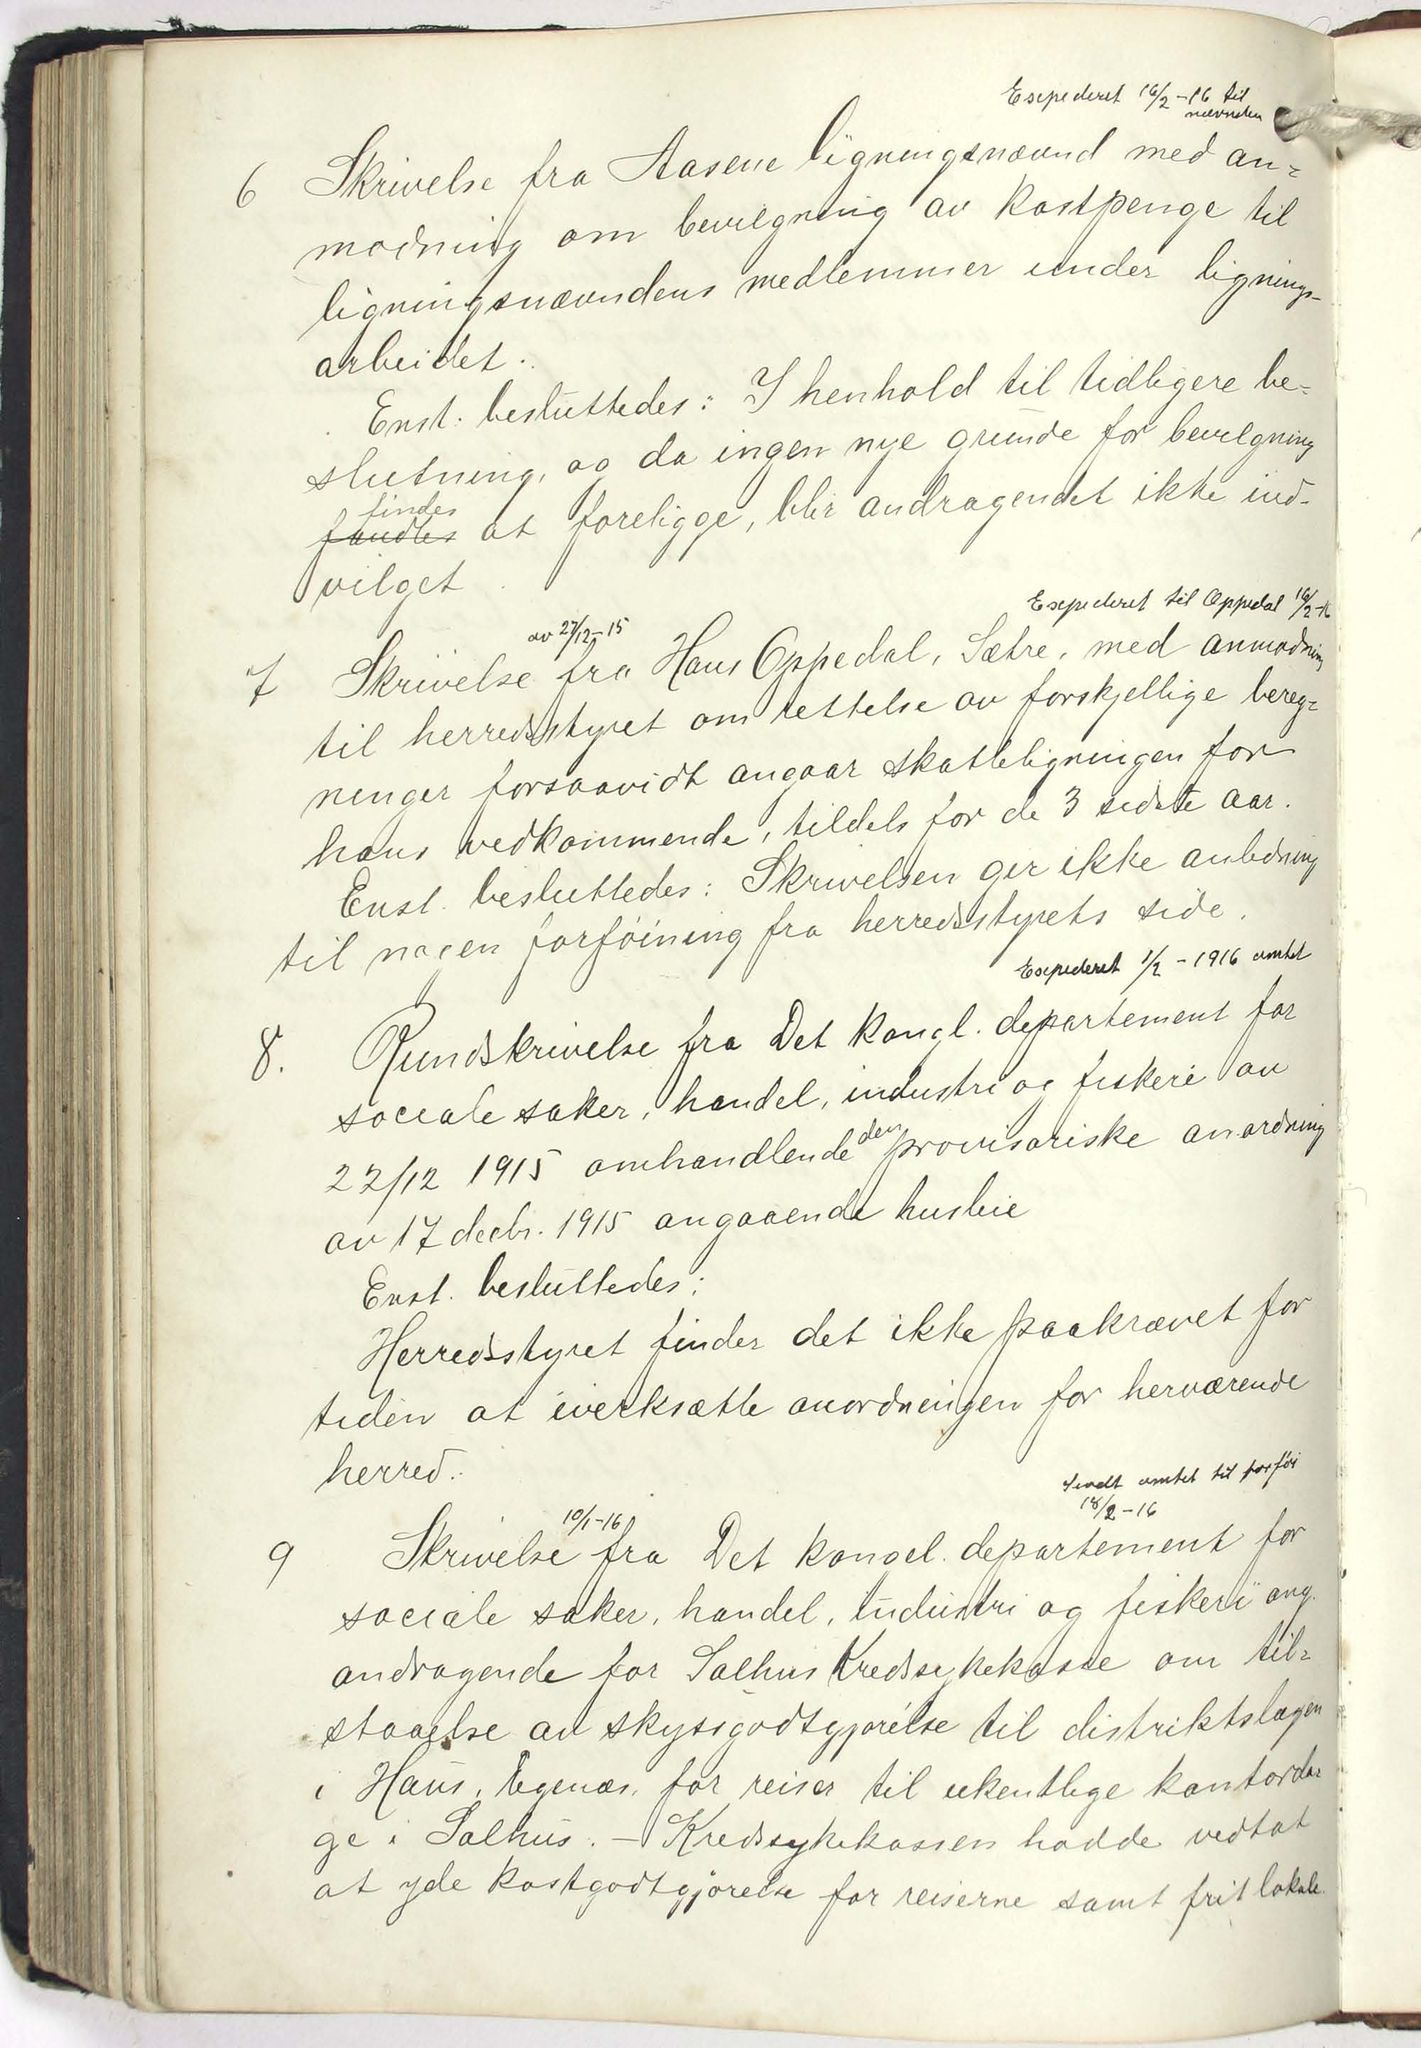 Expederet 16/2-16 til
nævnden
6 Skrivelse fra Aasene ligningsnævnd med an-
modning om bevilgning av kostpenge til
ligningsnævndens medlemmer under lignings-
arbeidet.
Enst. besluttedes: I henhold til tidligere be-
slutning, og da ingen nye grunde for bevilgning
findes
fandtes at foreligge, blir andragendet ikke ind-
vilget.
Expederet til Oppedal 16/2-16
av 27/12-15
7 Skrivelse fra Hans Oppedal, Sætre, med anmodning
til herredsstyret om rettelse av forskjellige bereg-
ninger forsaavidt angaar skatteligningen for
hans vedkommende, tildels for de 3 sidste aar.
Enst. besluttedes: Skrivelsen gir ikke anledning
til nogen forføining fra herredsstyrets side.
Expederet 1/2-1916 amtet
8. Rundskrivelse fra Det kongl. departement for
sociale saker, handel, industri og fiskeri av
den
22/12 1915 omhandlende provisoriske anordning
av 17 decbr. 1915 angaaende husleie
Enst. besluttedes:
Herredsstyret finder det ikke paakrævet for
tiden at iverksætte anordningen for herværende
herred.
Sendt amtet til forføi
18/2-16
10/1-16
9 Skrivelse fra Det kongel. departement for
sociale saker, handel, industri og fiskeri ang.
andragende for Salhus Kredssykekasse om til-
staaelse av skyssgodtgjørelse til distriktslægen
i Haus, for reiser til ukentlige kontorda-
ge i Salhus. - Kredssykekassen hadde vedtat
at yde kostgodtgjørelse for reiserne samt frit lokale.